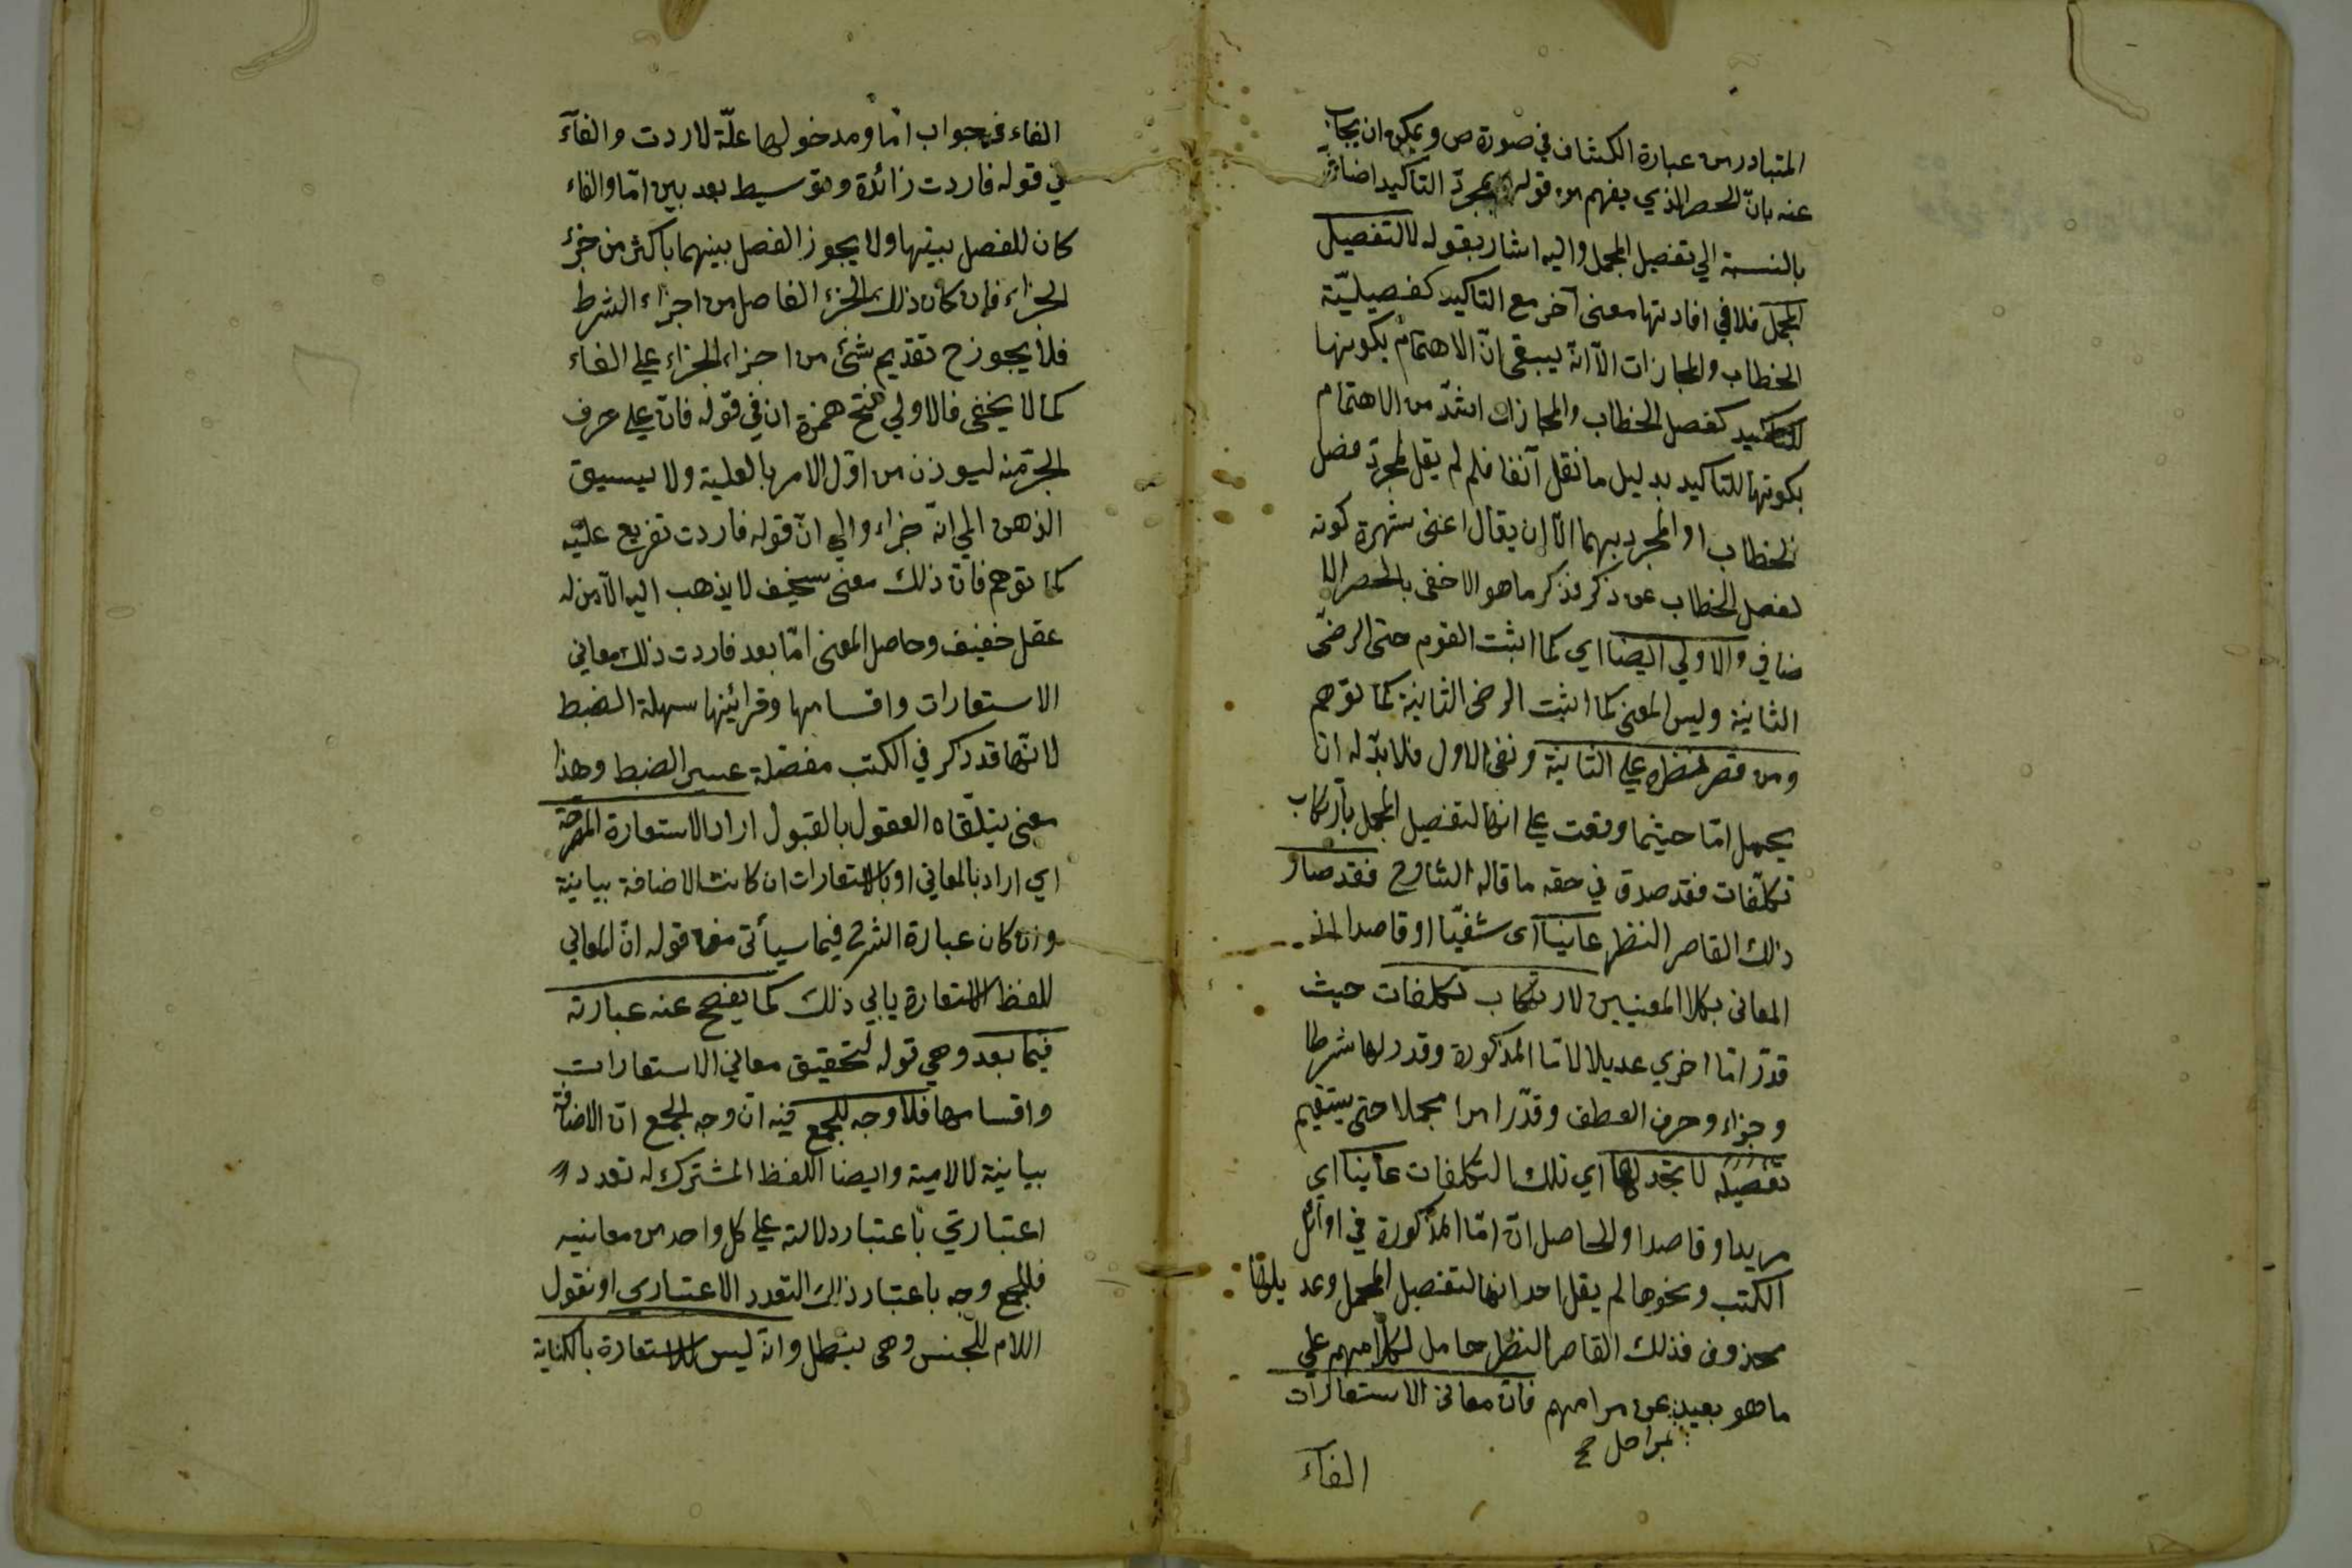 المتبادر من عبارة الكشاف في صورة ص ويمكن ان يجاب
عنه بانّ الحصر الذي يفهم من قوله لمجرّد التاكيد اضافيّ
بالنسبة الي تفصيل المجمل واليه اشار بقوله لا لتفصيل
المجمل فلا في افادتها معنى آخر مع التاكيد كفصيليّة
الخطاب والمجازات الاّ انّه يبقى انّ الاهتمام بكونها
للتاكيد كفصل الخطاب والمجازات اشدّ من الاهتمام
بكونها للتاكيد بدليل ما نقل آنفا فلم لم يقل لمجرّد فصل
الخطاب او المجرد بهما الاّ ان يقال اغنى شهرة كونه
لفصل الخطاب عن ذكر فذكر ما هو الاخفى بالحصر الا
ضافي والاولي ايضا اي كما اثبت القوم حتى الرضى
الثانية وليس المعنى كما اثبت الرضى الثانية كما توهم
ومن قصر نظره علي الثانية ونفى الاول فلا بدّ له ان
يجعل امّا حيثما وقعت على انها لتفصيل المجمل بارتكاب
تكلّفات فقد صدق في حقه ما قاله الشارح فقد صار
ذلك القاصر النظر عانيا اى شقيّا او قاصدا
المعانى بكلا المعنيين لارتكاب تكلفات حيث
قدّر امّا اخري عديلا لامّا المذكورة وقدر لها شرطا
وجزاء وحرف العطف وقدّر امرا مجملا حتى يستقيم
تفصيله لا تجد لها اي تلك التكلفات عانيا اي
مريدا وقاصدا والحاصل انّ امّا المذكورة في اوائل
الكتب ونحوها لم يقل احد انها لتفصيل المجمل وعد يلها
محذوف فذلك القاصر النظر حامل لكلامهم على
ما هو بعيد عن مرامهم فانّ معانى الاستعارات
بمراحل صح
الفاء
الفاء في جواب امّا ومدخولها علّة لاردت والفاء
في قوله فاردت زائدة وتوسيط بعد بين امّا والفاء
كان للفصل بينها ولا يجوز الفصل بينهما باكثر من جزء
الجزاء فان كان ذلك الجزء الفاصل من اجزاء الشرط
فلا يجوز ح تقديم شئ من اجزاء الجزاء علي الفاء
كما لا يخفى فالاولي فتح همزة ان في قوله فانّ علي حرف
الجرّ منه ليوذن من اوّل الامر بالعلية ولا يسبق
الذهن الي انّه جزاء والي انّ قوله فاردت تفريع عليه
كما توهم فانّ ذلك معنى سخيف لا يذهب اليه الاّ من له
عقل خفيف وحاصل المعنى امّا بعد فاردت ذلك معاني
الاستعارات واقسامها وقرائنها سهلة الضبط
لانّها قد ذكر في الكتب مفصّلة عسير الضبط وهذا
معنى يتلقّاه العقول بالقبول اراد الاستعارة المصرّحة
اي اراد بالمعاني او بالاستعارات ان كانت الاضافة بيانية
وان كان عبارة الشرح فيما سيأتى معا قوله انّ المعاني
للفظ الاستعارة يابي ذلك كما يفصح عنه عبارته
فيما بعد وهي قوله لتحقيق معاني الاستعارات
واقسامها فلا وجه للجمع فيه انّ وجه الجمع انّ الاضافة
بيانية لا لامية وايضا اللفظ المشترك له تعدد
اعتباريّ باعتبار دلالته علي كل واحد من معانيه
فللجمع وجه باعتبار ذلك التعدد الاعتباري او نقول
اللام للجنس وهى يبطل وانّه ليس للاستعارة بالكناية